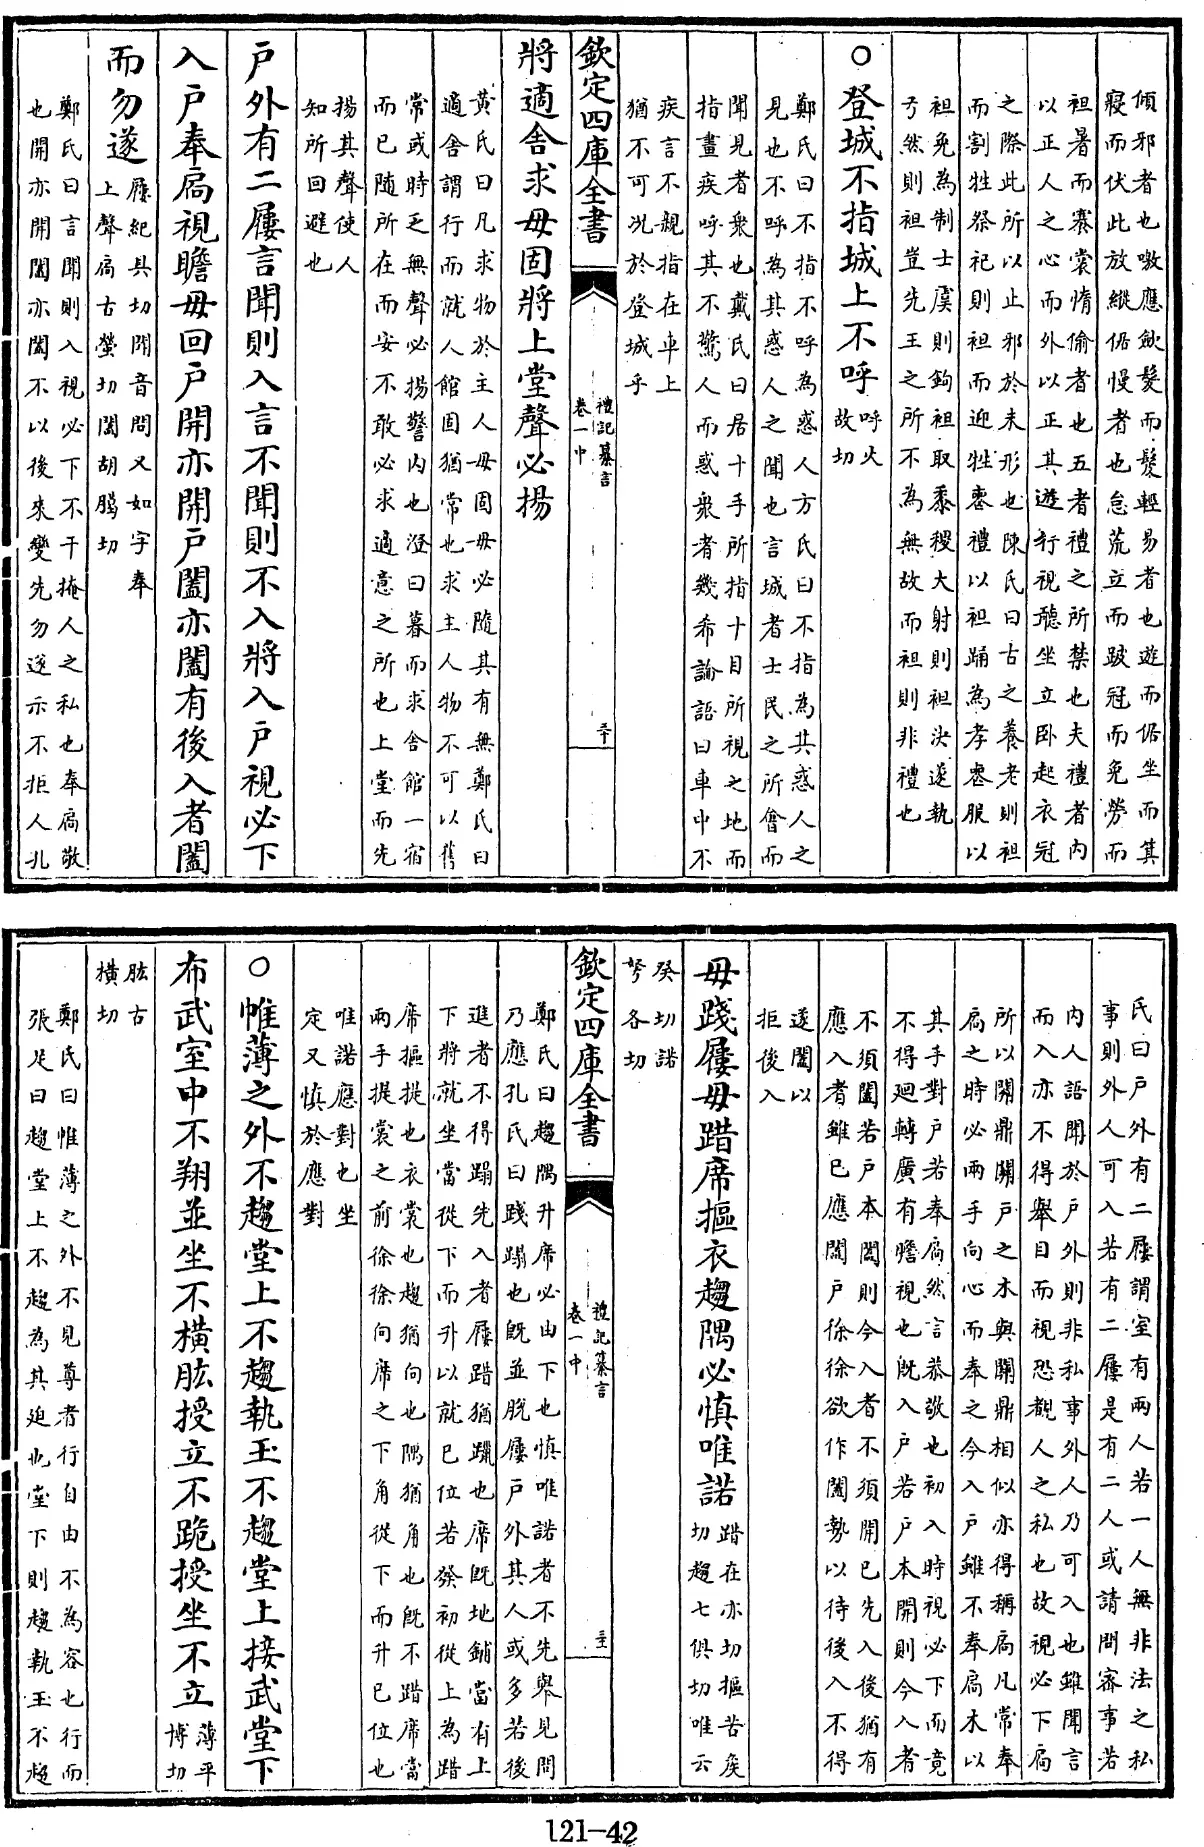 傾邪者也噭應歛髮而髲輕易者也遊而倨坐而其
寢而伏此放縱倨慢者也怠荒立而跛冠而免勞而
袒暑而褰裳惰偷者也五者禮之所禁也夫禮者内
以正人之心而外以正其遊行視聽坐立卧起衣冠
之際此所以止邪於未形也陳氏曰古之養老則袒
而割牲祭祀則袒而迎牲喪禮以袒踊為孝喪服以
袒免為制士虞則鉤袒取黍稷大射則袒決遂執
弓然則袒豈先王之所不為無故而袒則非禮也
○登城不指城上不呼呼火故切
鄭氏曰不指不呼為惑人方氏曰不指為其惑人之
見也不呼為其惑人之聞也言城者士民之所會而
聞見者衆也戴氏曰居十手所指十目所視之地而
指畫疾呼其不驚人而惑衆者幾希論語曰車中不
疾言不親指在車上
猶不可況於登城乎
欽定四庫全書
禮記纂言
卷一中
三十
將適舍求毋固將上堂聲必揚
黄氏曰凡求物於主人毋固毋必隨其有無鄭氏曰
適舍謂行而就人館固猶常也求主人物不可以舊
常或時乏無聲必揚警内也澄曰暮而求舍館一宿
而已隨所在而安不敢必求適意之所也上堂而先
揚其聲使人
知所回避也
户外有二屨言聞則入言不聞則不入將入户視必下
入户奉扃視瞻毋回户開亦開户闔亦闔有後入者闔
而勿遂屨紀具切聞音問又如字奉上聲扃古螢切闔胡臈切
鄭氏曰言聞則入視必下不干掩人之私也奉扃敬
也開亦開闔亦闔不以後來變先勿遂示不拒人孔
氏曰户外有二屨謂室有兩人若一人無非法之私
事則外人可入若有二屨是有二人或請問密事若
内人語聞於户外則非私事外人乃可入也雖聞言
而入亦不得舉目而視恐覩人之私也故視必下扃
所以關鼎關户之木與關鼎相似亦得稱扃凡常奉
扃之時必兩手向心而奉之今入户雖不奉扃木以
其手對户若奉扃然言恭敬也初入時視必下而竟
不得廻轉廣有瞻視也既入户若户本開則今入者
不須闔若户本闔則今入者不須開已先入後猶有
應入者雖已應闔户徐徐欲作闔勢以待後入不得
遂闔以
拒後入
毋踐屨毋踖席摳衣趨隅必慎唯諾踖在亦切摳苦矦切趨七俱切唯云
癸切諾
弩各切
欽定四庫全書
禮記纂言
卷一中
三十一
鄭氏曰趨隅升席必由下也慎唯諾者不先舉見問
乃應孔氏曰踐蹋也既並脱屨户外其人或多若後
進者不得蹋先入者屨踖猶躐也席既地鋪當有上
下將就坐當從下而升以就已位若發初從上為踖
席摳提也衣裳也趨猶向也隅猶角也既不踖席當
兩手提裳之前徐徐向席之下角從下而升已位也
唯諾應對也坐
定又慎於應對
○帷薄之外不趨堂上不趨執玉不趨堂上接武堂下
布武室中不翔並坐不橫肱授立不跪授坐不立薄平博切
肱古
橫切
鄭氏曰惟薄之外不見尊者行自由不為容也行而
張足曰趨堂上不趨為其廹也堂下則趨執玉不趨
121-42